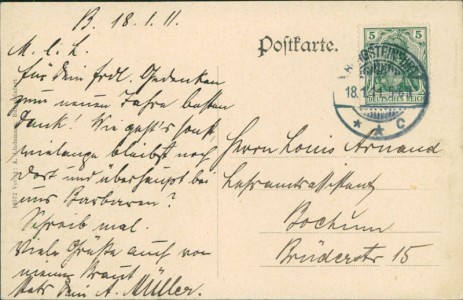 B. 18.1.11.
M. l. L.
Für Dein frdl. Gedenken
zum neuen Jahre besten
Dank! Wie geht's sonst,
wielange bleibst noch
dort und überhaupt bei
uns Barbaren?
Schreib mal.
Viele Grüße auch von
meiner Braut
stets Dein A. Müller.
Postkarte.
5 5
DEUTSCHES REICH
18.1.11
* * C
Herrn Louis Arnand
Bochum
Brüderstr 15